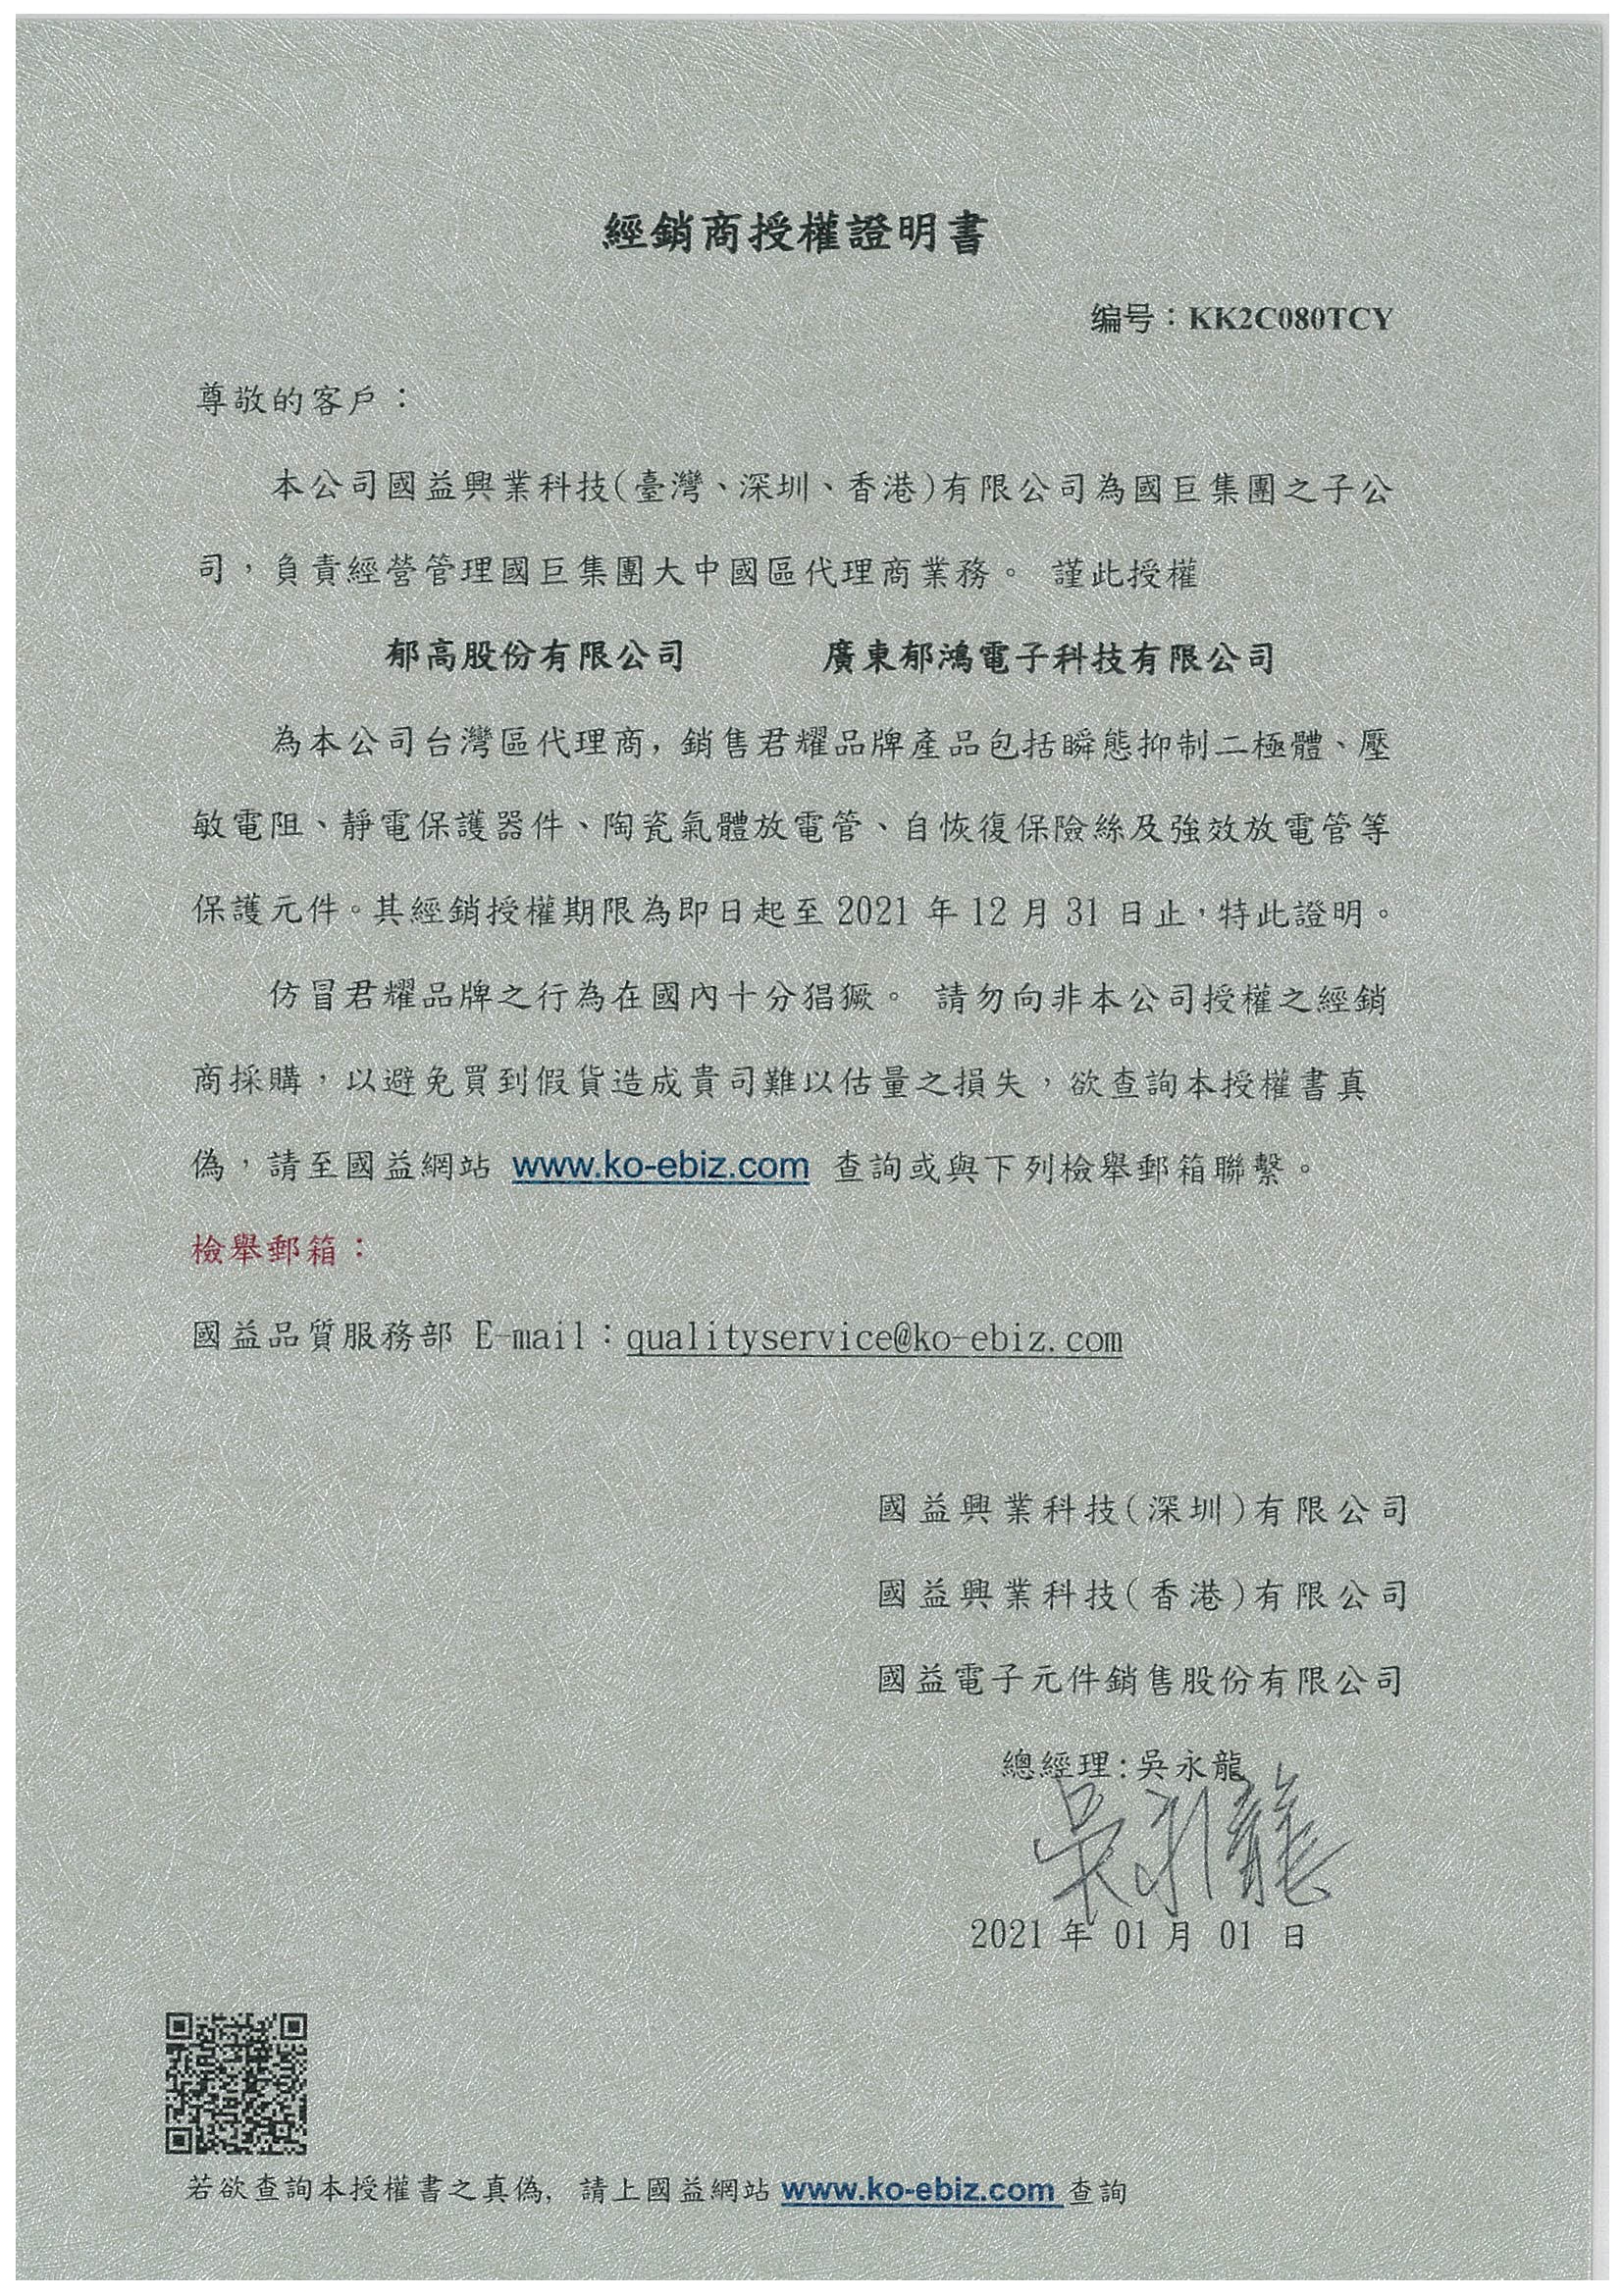 經銷商授權證明書
编号：KK2C080TCY
尊敬的客戶：
本公司國益興業科技(臺灣、深圳、香港)有限公司為國巨集團之子公
司，負責經營管理國巨集團大中國區代理商業務。 謹此授權
郁高股份有限公司 廣東郁鴻電子科技有限公司
為本公司台灣區代理商，銷售君耀品牌產品包括瞬態抑制二極體、壓
敏電阻、靜電保護器件、陶瓷氣體放電管、自恢復保險絲及強效放電管等
保護元件。其經銷授權期限為即日起至 2021 年 12 月 31 日止，特此證明。
仿冒君耀品牌之行為在國內十分猖獗。 請勿向非本公司授權之經銷
商採購，以避免買到假貨造成貴司難以估量之損失，欲查詢本授權書真
偽，請至國益網站 www.ko-ebiz.com 查詢或與下列檢舉郵箱聯繫。
檢舉郵箱：
國益品質服務部 E-mail：qualityservice@ko-ebiz.com
國益興業科技(深圳)有限公司
國益興業科技(香港)有限公司
國益電子元件銷售股份有限公司
總經理:吳永龍
吳永龍
2021 年 01 月 01 日
若欲查詢本授權書之真偽, 請上國益網站 www.ko-ebiz.com 查詢